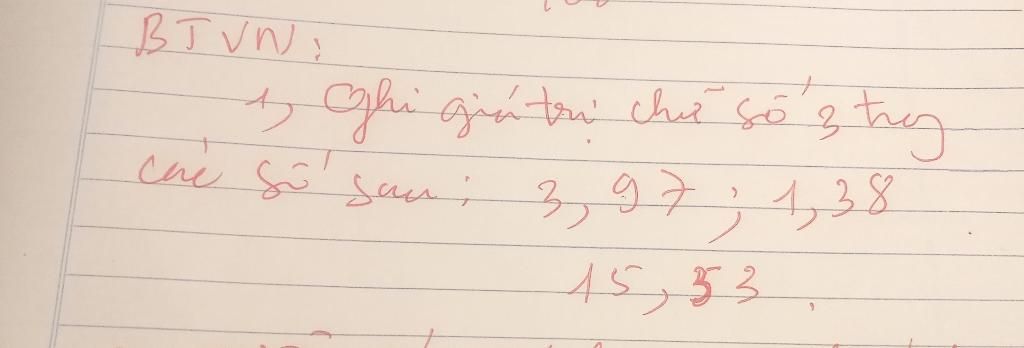 BTVN:
1, Ghi giá trị chữ số 3 trg
các số sau: 3,97; 1,38
15,53.